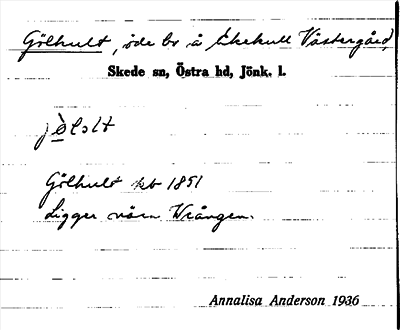 Gölhult, öde br å Åkekull Västergård,
Skede sn, Östra hd, Jönk. l.
jö̀lslt
Gölhult kb 1851
Ligger nära Vrången.
Annalisa Anderson 1936